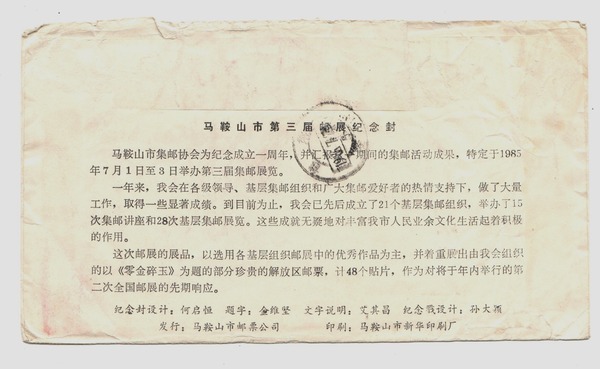 马鞍山市第三届邮展纪念封
马鞍山市集邮协会为纪念成立一周年，并汇报 期间的集邮活动成果，特定于1985
年7月1日至3日举办第三届集邮展览。
一年来，我会在各级领导、基层集邮组织和广大集邮爱好者的热情支持下，做了大量
工作，取得一些显著成绩。到目前为止，我会已先后成立了21个基层集邮组织，举办了15
次集邮讲座和28次基层集邮展览。这些成就无疑地对丰富我市人民业余文化生活起着积极
的作用。
这次邮展的展品，以选用各基层组织邮展中的优秀作品为主，并着重展出由我会组织
的以《零金碎玉》为题的部分珍贵的解放区邮票，计48个贴片，作为对将于年内举行的第
二次全国邮展的先期响应。
纪念封设计：何启恒 题字：金维坚 文字说明：艾其昌 纪念戳设计：孙大颖
发行：马鞍山市邮票公司 印刷：马鞍山市新华印刷厂